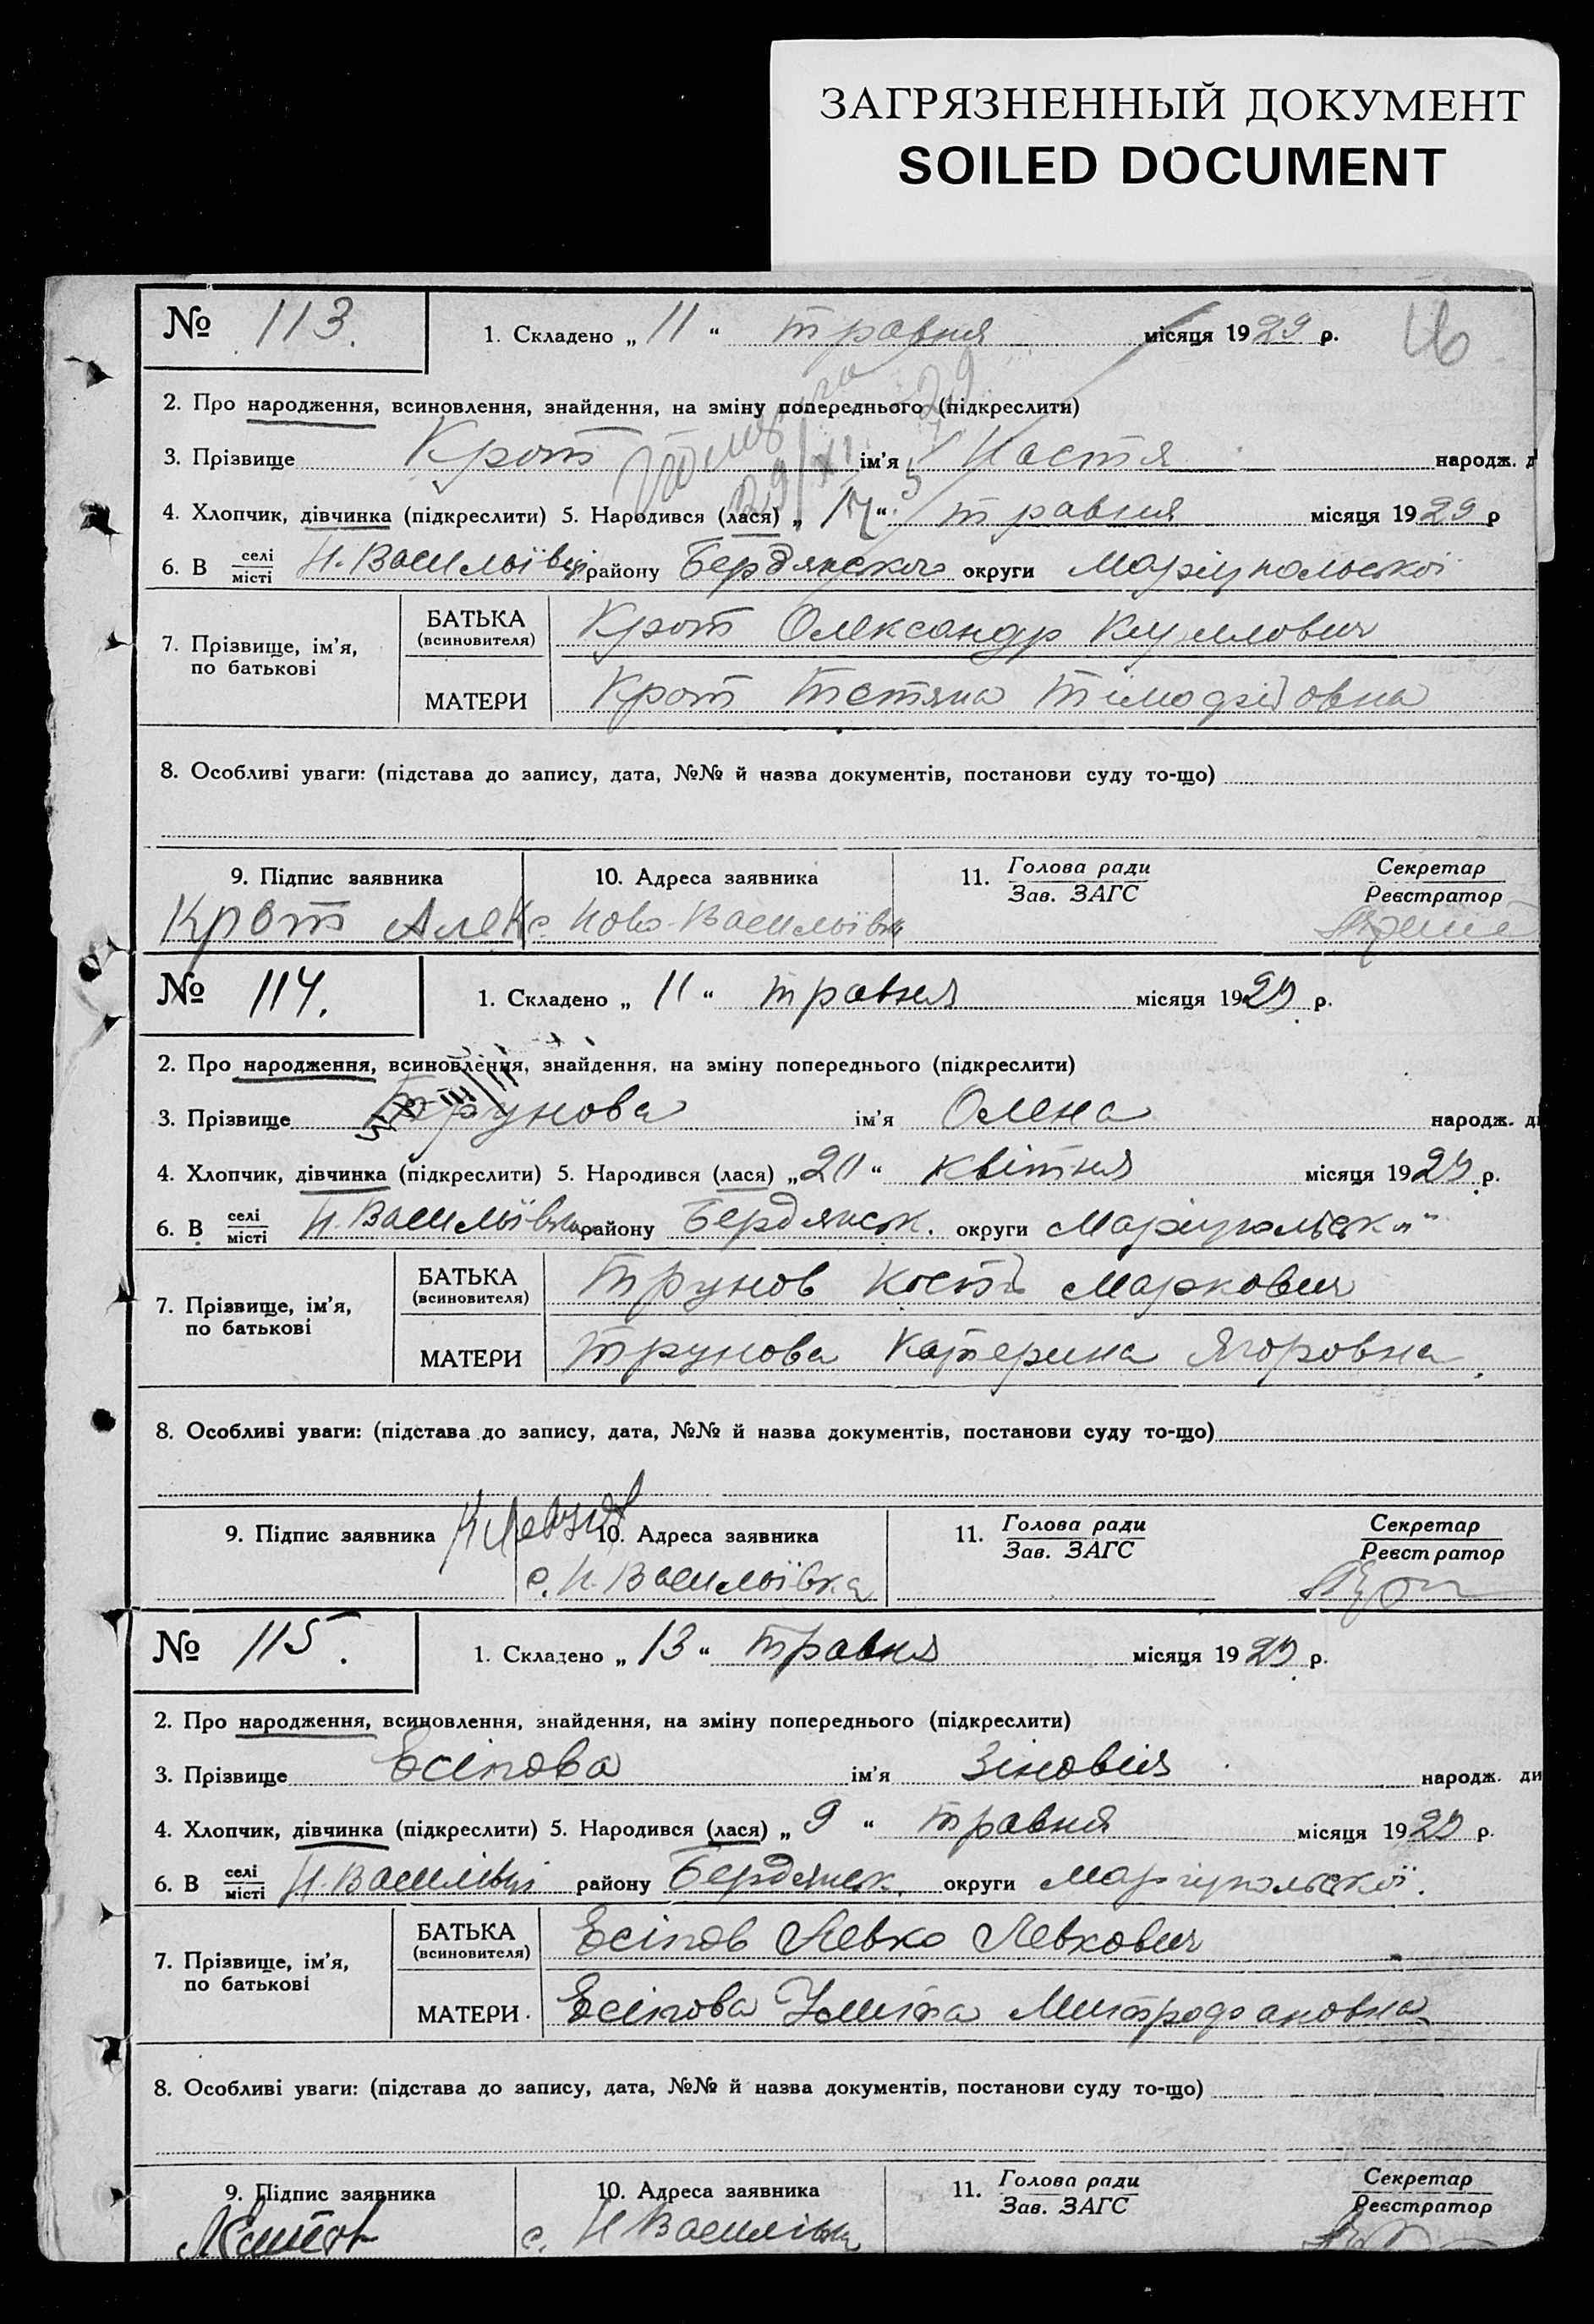 ЗАГРЯЗНЕННЫЙ ДОКУМЕНТ
SOILED DOCUMENT
№ 113. 1. Складено „ 11 “ травня місяця 1929 р.
2. Про народження, всиновлення, знайдення, на зміну попереднього (підкреслити)
3. Прізвище Крот ім'я Настя народж. д
4. Хлопчик, дівчинка (підкреслити) 5. Народився (лася) „ “ травня місяця 1929 р
6. В селі/місті Н. Васильївці району Бердянського округи Маріупольської
7. Прізвище, ім'я, по батькові
БАТЬКА (всиновителя) Крот Олександр
МАТЕРИ Крот Тетяна
8. Особливі уваги: (підстава до запису, дата, №№ й назва документів, постанови суду то-що)
9. Підпис заявника 10. Адреса заявника 11. Голова ради/Зав. ЗАГС Секретар/Реєстратор
Крот Алек с. Ново-Васильївка
№ 114. 1. Складено „ 11 “ травня місяця 1929 р.
2. Про народження, всиновлення, знайдення, на зміну попереднього (підкреслити)
3. Прізвище Трунова ім'я Олена народж. д
4. Хлопчик, дівчинка (підкреслити) 5. Народився (лася) „ 20 “ квітня місяця 1929 р.
6. В селі/місті Н. Васильївка району Бердянськ. округи Маріупольськ
7. Прізвище, ім'я, по батькові
БАТЬКА (всиновителя) Трунов Кость Маркович
МАТЕРИ Трунова Катерина Ягоровна
8. Особливі уваги: (підстава до запису, дата, №№ й назва документів, постанови суду то-що)
9. Підпис заявника 10. Адреса заявника 11. Голова ради/Зав. ЗАГС Секретар/Реєстратор
с. Н. Васильївка
№ 115. 1. Складено „ 13 “ травня місяця 1929 р.
2. Про народження, всиновлення, знайдення, на зміну попереднього (підкреслити)
3. Прізвище Есіпова ім'я Зіновія народж. ди
4. Хлопчик, дівчинка (підкреслити) 5. Народився (лася) „ 9 “ травня місяця 1929 р.
6. В селі/місті Н. Василівці району Бердянськ. округи Маріупольської.
7. Прізвище, ім'я, по батькові
БАТЬКА (всиновителя) Есіпов Левко Левкович
МАТЕРИ Есіпова Улита Митрофановна
8. Особливі уваги: (підстава до запису, дата, №№ й назва документів, постанови суду то-що)
9. Підпис заявника 10. Адреса заявника 11. Голова ради/Зав. ЗАГС Секретар/Реєстратор
с. Н Василівка